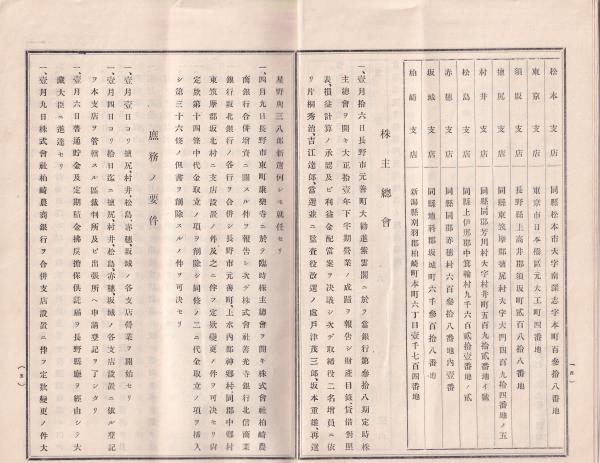 松本支店 同縣松本市大字南深志字本町百參拾八番地
東京支店 東京市日本橋區元大工町四番地
須坂支店 同縣上高井郡須坂町貳百八拾八番地
穗尻支店 同縣東筑摩郡穗尻村大字大門四百九拾四番地ノ五
村井支店 同縣同郡芳川村大字村井町五百九拾貳番地イ號
松島支店 同縣上伊那郡中箕輪村九千六百貳拾壹番地ノ貳
赤穗支店 同縣同郡赤穗村六百參拾八番地內壹番
坂城支店 同縣埴科郡坂城町六千參百拾八番地
柏崎支店 新潟縣刈羽郡柏崎町本町六丁目壹千七百四番地
株主總會
一、壹月拾六日長野市元善町大勸進紫雲閣ニ於テ當銀行第參拾八期定時株
主總會ヲ開キ大正拾壹年下半期營業ノ成蹟ヲ報告シ財產目錄、貸借對照
表、損益計算ノ承認及ビ利益金配當案ヲ決議シ次デ取締役二名增員ニ依
リ片桐秀治、吉江達郎、當選並ニ監査役改選ノ處戶津茂三郎坂本重雄、再選
星野與三八郎新選何レモ就任セリ
一、四月九日長野市東町康樂寺ニ於テ臨時株主總會ヲ開キ株式會社柏崎農
商銀行合併增資ニ關スル件ヲ報告シ次デ株式會社善光寺銀行北信商業
銀行坂北銀行ノ各行ヲ合併シ長野市元善町、上水內郡神鄕村同郡中鄕村
東筑摩郡坂北村ニ支店設置ノ件及之ニ伴フ定欵變更ノ件ヲ可決セリ尙
定欵第十四條中代金取立ノ項ヲ削除シ同條ノ二ニ代金取立ノ項ヲ揷入
シ第三十六條ノ但書ヲ削除スルノ件ヲ可決セリ
庶務ノ要件
一、壹月壹日ヨリ穗尻、村井、松島、赤穗、坂城ノ各支店營業ヲ開始セリ
一、壹月四日ヨリ拾日迄ニ穗尻、村井、松島、赤穗坂城ノ各支店設置ニ依ル登記
ヲ本支店ヲ管轄スル區裁判所及ビ出張所ヘ申請登記ヲ了シタリ
一、壹月六日普通貯金及定期積金拂戾擔保供託屆ヲ長野縣廳ヲ經由シテ大
藏大臣ニ進達セリ
一、壹月九日株式會社柏崎農商銀行ヲ合併支店設置ニ伴フ定欵變更ノ件大